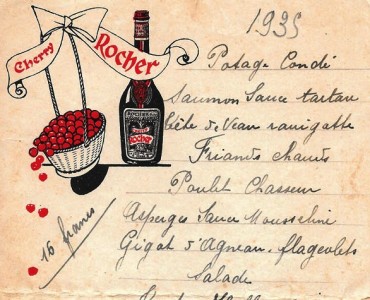 1935
Cherry Rocher
Rocher
Potage Condé
Saumon Sauce tartare
Tête de Veau ravigotte
Friands chauds
Poulet Chasseur
Asperges Sauce Mousseline
Gigot d'Agneau flageolets
Salade
16 francs